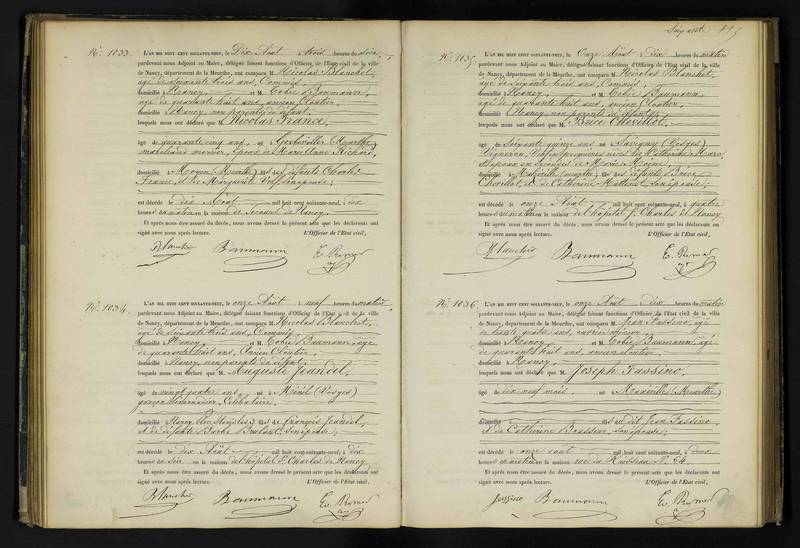 N.º 1033. L'AN MIL HUIT CENT SOIXANTE-NEUF, le Dix Août à trois heures du soir,
pardevant nous Adjoint au Maire, délégué faisant fonctions d'Officier de l'Etat civil de la ville
de Nancy, département de la Meurthe, ont comparu M. Nicolas Blanchet,
âgé de soixante trois ans, Commis,
domicilié à Nancy, et M. Tobie Baumann,
âgé de quarante huit ans, ancien Cloutier,
domicilié à Nancy, non parents du défunt,
lesquels nous ont déclaré que M. Nicolas France,
âgé de quarante cinq ans, né à Gerbéviller (Meurthe)
époux de Richard,
domicilié à Moyen (Meurthe) fils des défunts Charles
France, et de Marguerite son épouse;
est décédé le dix Août mil huit cent soixante-neuf, à dix
heures du matin en la maison de Secours de Nancy.
Et après nous être assuré du décès, nous avons dressé le présent acte que les déclarants ont
signé avec nous après lecture. L'Officier de l'Etat civil,
Blanchet Baumann
N.º 1034. L'AN MIL HUIT CENT SOIXANTE-NEUF, le onze Août à neuf heures du matin,
pardevant nous Adjoint au Maire, délégué faisant fonctions d'Officier de l'Etat civil de la ville
de Nancy, département de la Meurthe, ont comparu M. Nicolas Blanchet,
âgé de soixante trois ans, Commis,
domicilié à Nancy, et M. Tobie Baumann, âgé
de quarante huit ans, ancien Cloutier,
domicilié à Nancy, non parents du défunt,
lesquels nous ont déclaré que M. Auguste Jeandel,
âgé de vingt quatre ans, né à Ménil (Vosges)
garçon limonadier, Célibataire,
domicilié à Nancy, fils de François Jeandel,
et de défunte Barbe son épouse;
est décédé le dix Août mil huit cent soixante-neuf, à dix
heures du soir en la maison de l'hôpital St Charles de Nancy.
Et après nous être assuré du décès, nous avons dressé le présent acte que les déclarants ont
signé avec nous après lecture. L'Officier de l'Etat civil,
Blanchet Baumann
N.º 1035. L'AN MIL HUIT CENT SOIXANTE-NEUF, le Onze Août à Dix heures du matin
pardevant nous Adjoint au Maire, délégué faisant fonctions d'Officier de l'Etat civil de la ville
de Nancy, département de la Meurthe, ont comparu M. Nicolas Blanchet,
âgé de soixante trois ans, Commis,
domicilié à Nancy, et M. Tobie Baumann,
âgé de quarante huit ans, ancien Cloutier,
domicilié à Nancy, non parents du défunt,
lesquels nous ont déclaré que M. Brice Chevillot,
âgé de soixante quinze ans, né à Savigny (Vosges)
Vigneron, Veuf en premières noces de Catherine
époux en secondes de Marie
domicilié à Maxéville (Meurthe) fils des défunts Brice
Chevillot, et de Catherine son épouse;
est décédé le onze Août mil huit cent soixante-neuf, à quatre
heures du matin en la maison de l'hôpital St Charles de Nancy.
Et après nous être assuré du décès, nous avons dressé le présent acte que les déclarants ont
signé avec nous après lecture. L'Officier de l'Etat civil,
Blanchet Baumann
N.º 1036. L'AN MIL HUIT CENT SOIXANTE-NEUF, le onze Août à Dix heures du matin
pardevant nous Adjoint au Maire, délégué faisant fonctions d'Officier de l'Etat civil de la ville
de Nancy, département de la Meurthe, ont comparu M. Jean Fassino, âgé
de trente quatre ans, ouvrier mineur,
domicilié à Nancy, et M. Tobie Baumann, âgé
de quarante huit ans, ancien cloutier,
domicilié à Nancy,
lesquels nous ont déclaré que M. Joseph Fassino,
âgé de dix neuf mois, né à Maxéville (Meurthe)
domicilié à fils du dit Jean Fassino,
et de Catherine Brasseur, son épouse;
est décédé le onze août mil huit cent soixante-neuf, à deux
heures du matin en la maison rue du Ruisseau N.º 54.
Et après nous être assuré du décès, nous avons dressé le présent acte que les déclarants ont
signé avec nous après lecture. L'Officier de l'Etat civil,
Baumann